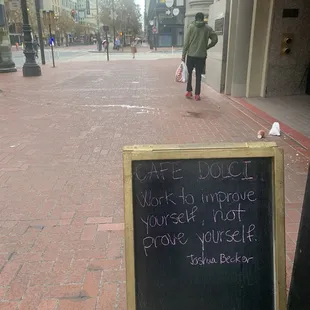 CAFE DOLCI
Work to improve
yourself, not
prove yourself.
Joshua Becker